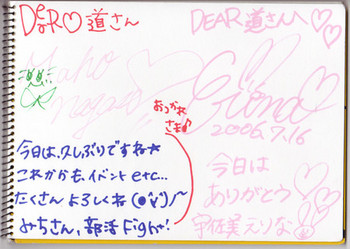 DeaR♡道さん
Maho
nagas
おつかれ
さま♪
今日は、久しぶりですね☆
これからも、イベントetc...
たくさん よろしくね
みちさん、部活Fight!
DEAR 道さんへ♡♡
2006.7.16
今日は
ありがとう
宇佐美えりな